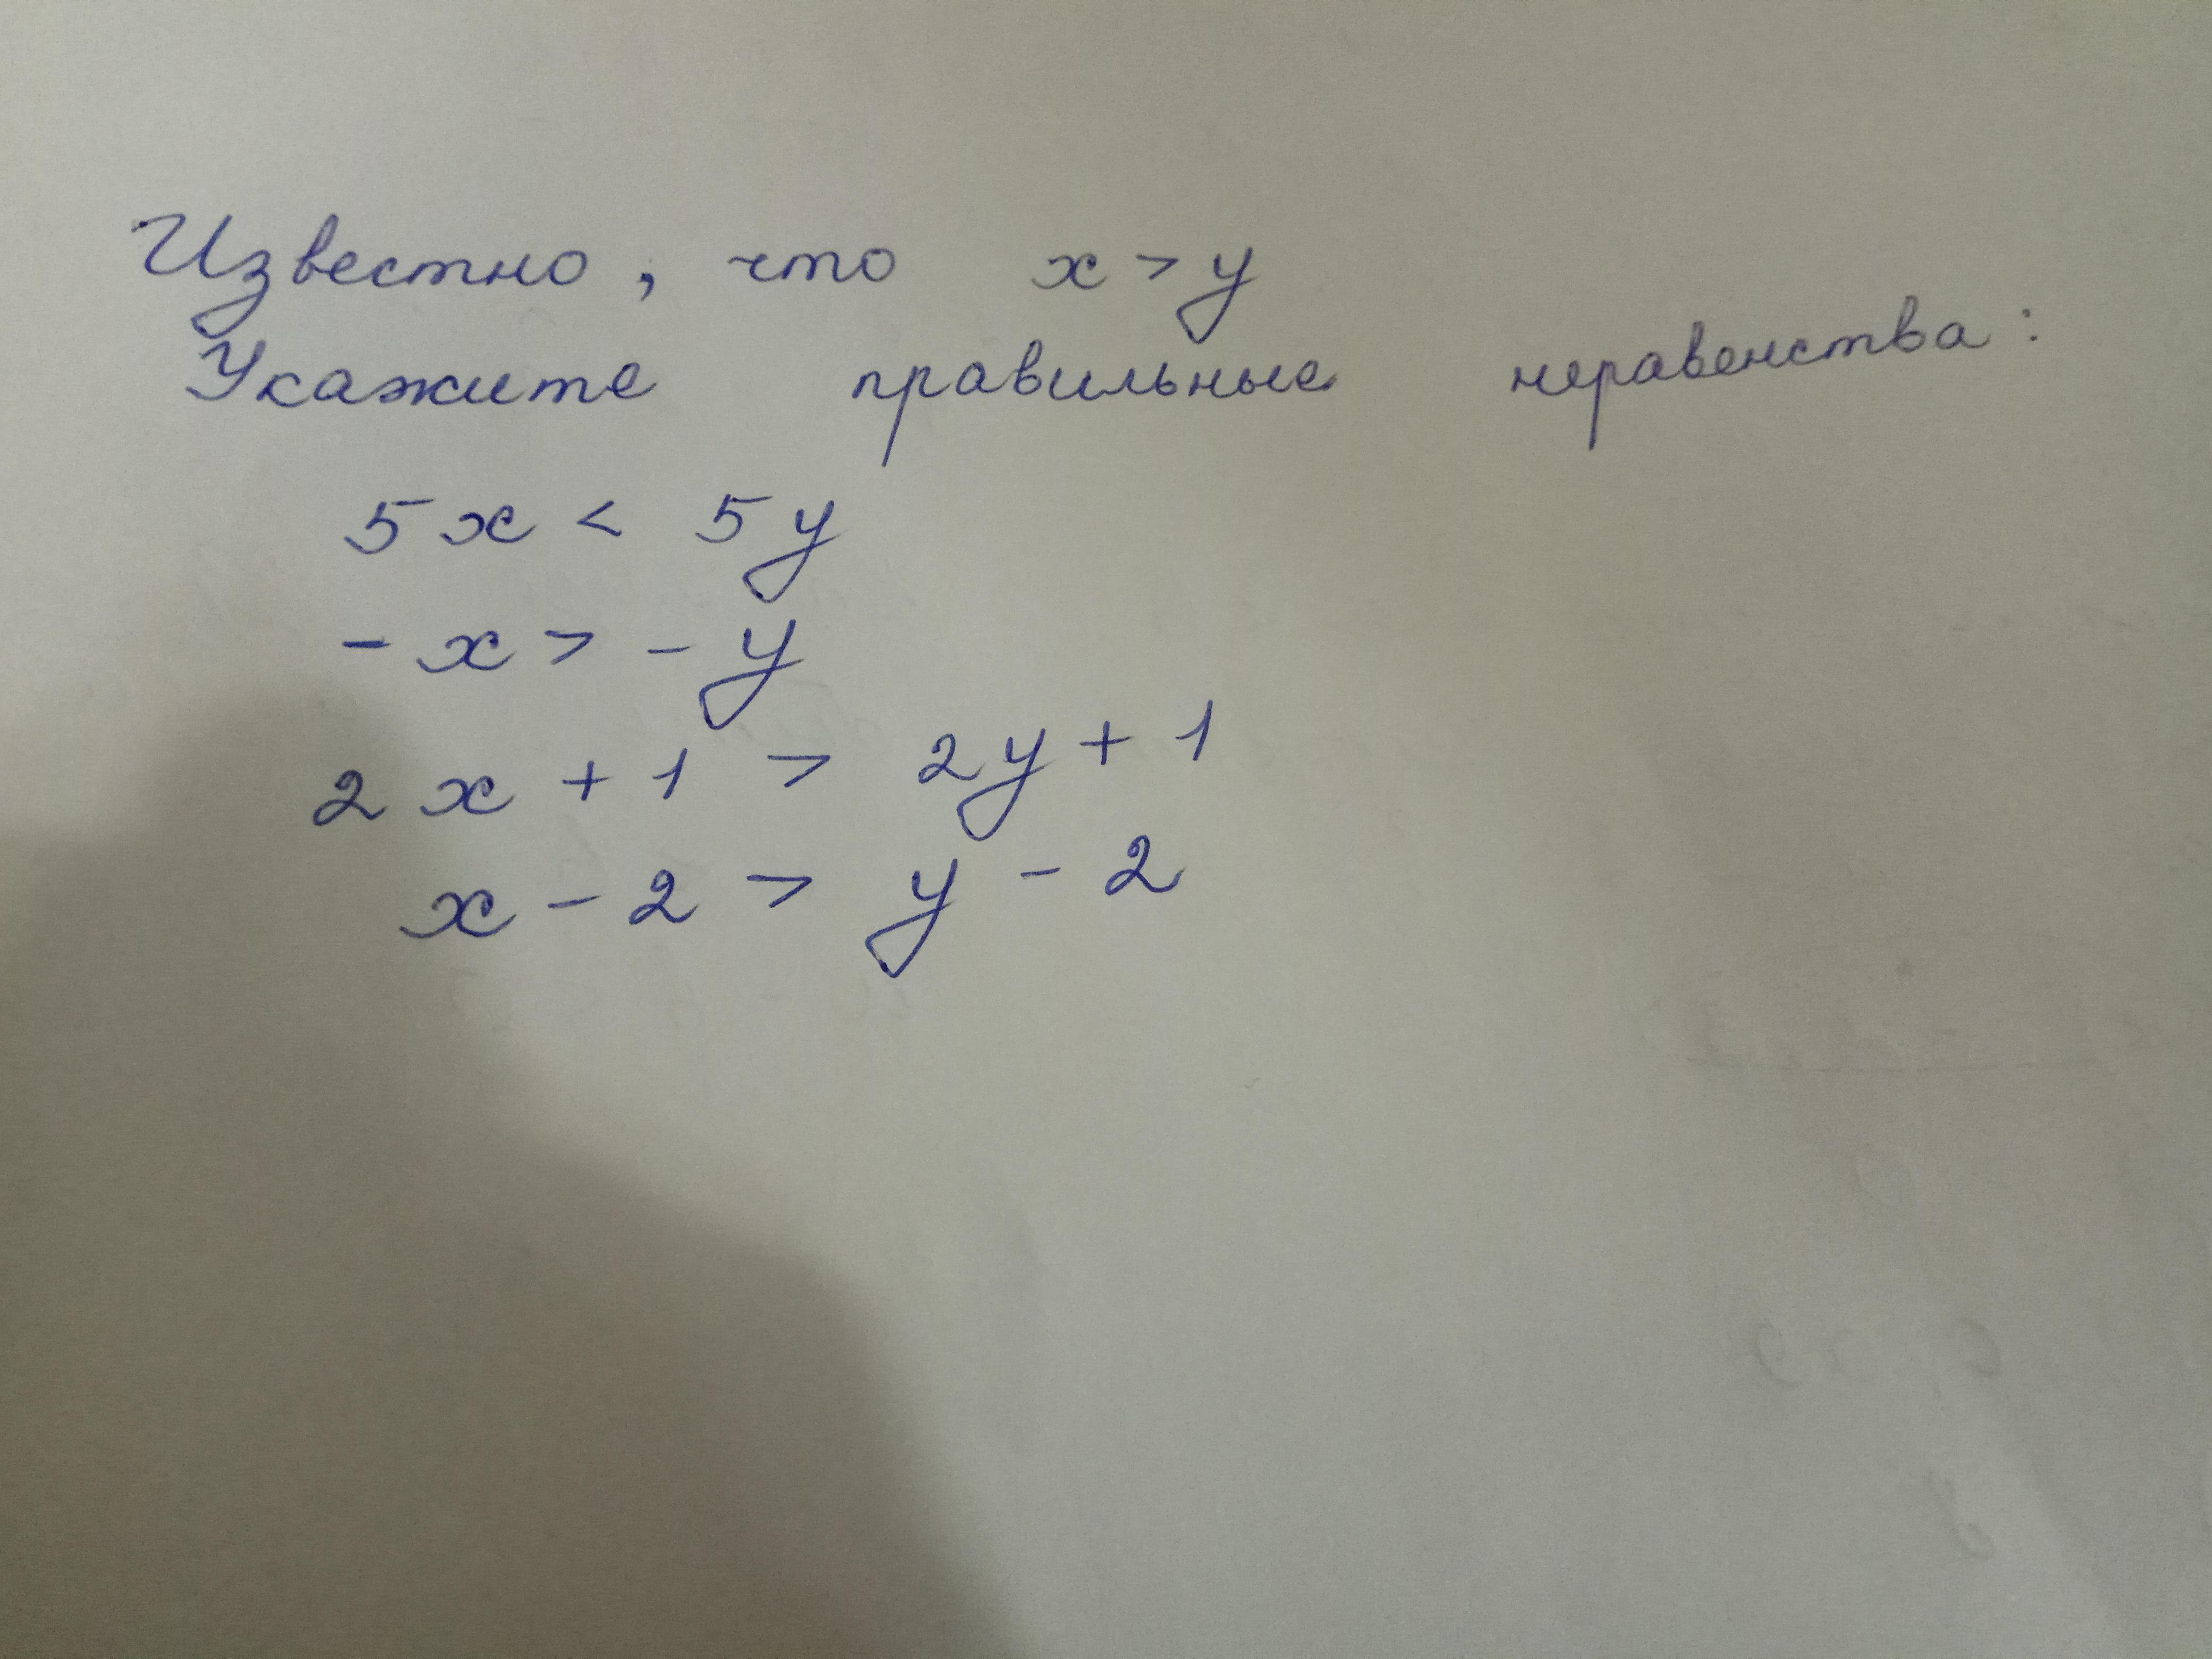 Известно, что x > y
Укажите правильные неравенства:
5x < 5y
- x > - y
2x + 1 > 2y + 1
x - 2 > y - 2